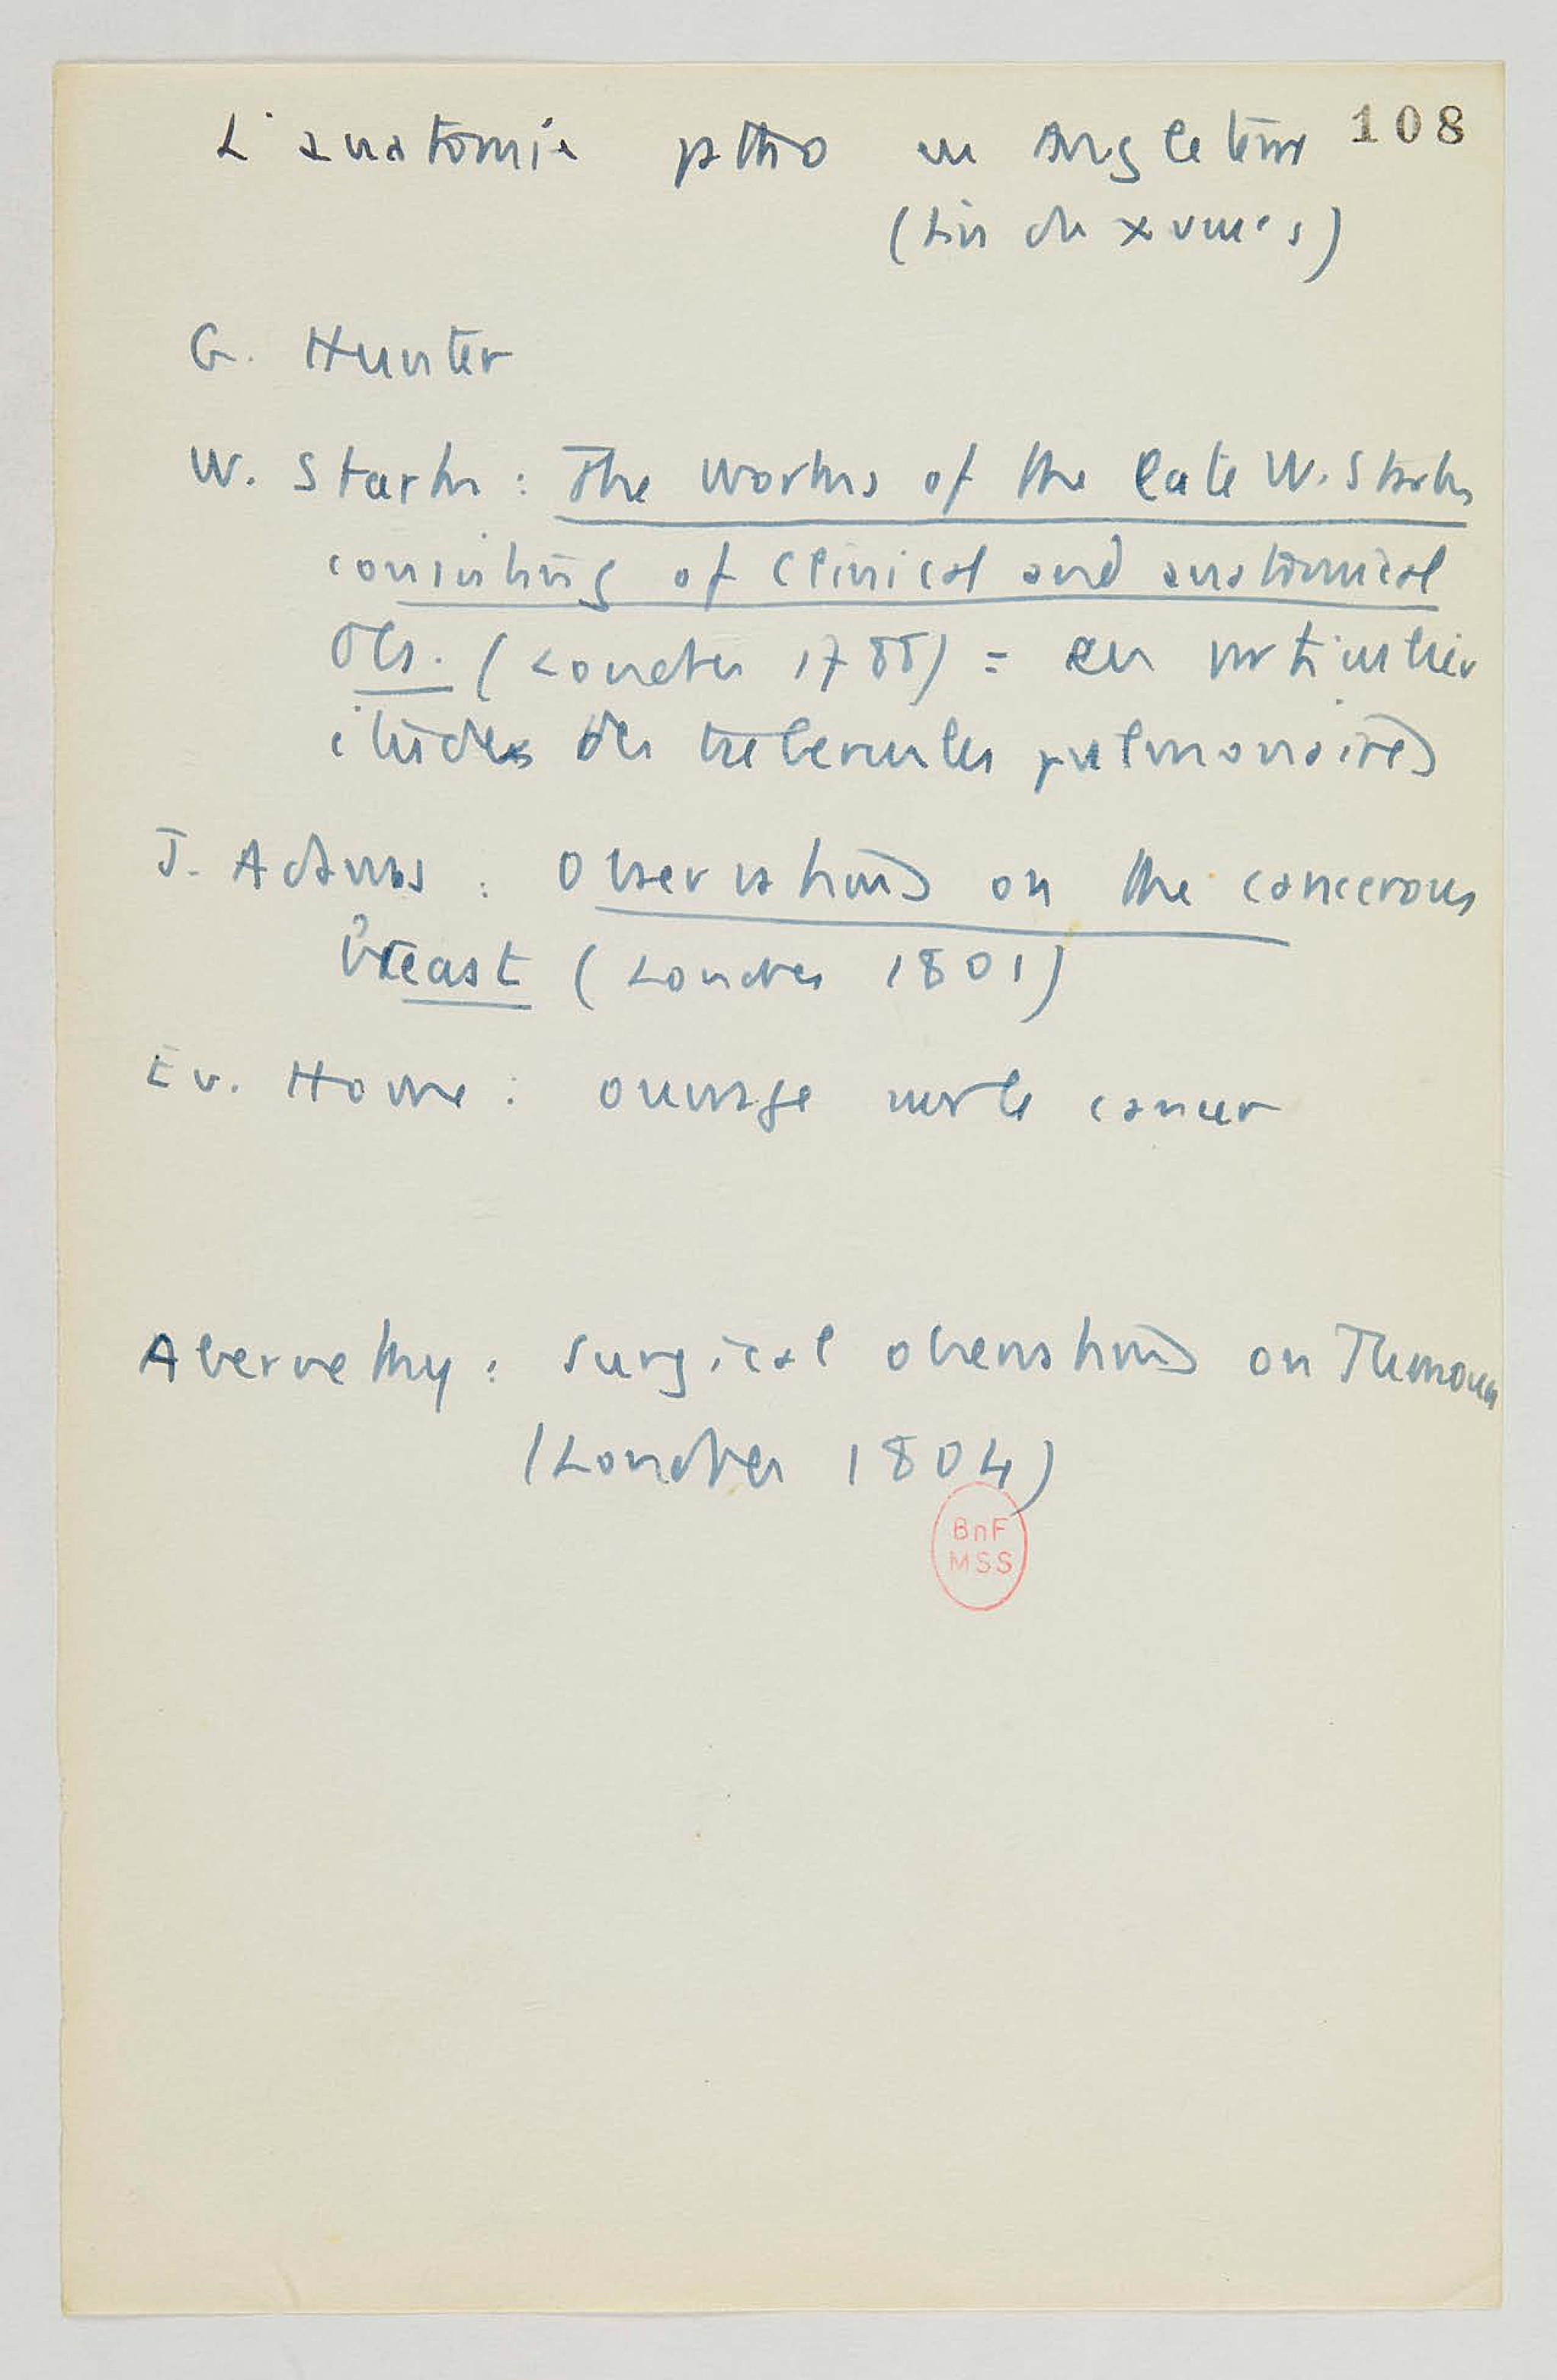 L'anatomie ptho en Angleterre 108
(fin du XVIIIe s)
G. Hunter
W. Stark : The works of the late W. Stark
consisting of clinical and anatomical
Obs. (Londres 1788) = en particulier
études des tubercules pulmonaires
J. Adams : Observations on the cancerous
breast (Londres 1801)
Ev. Home : ouvrage sur le cancer
Abernethy : Surgical observations on Tumours
(Londres 1804)
BnF
MSS